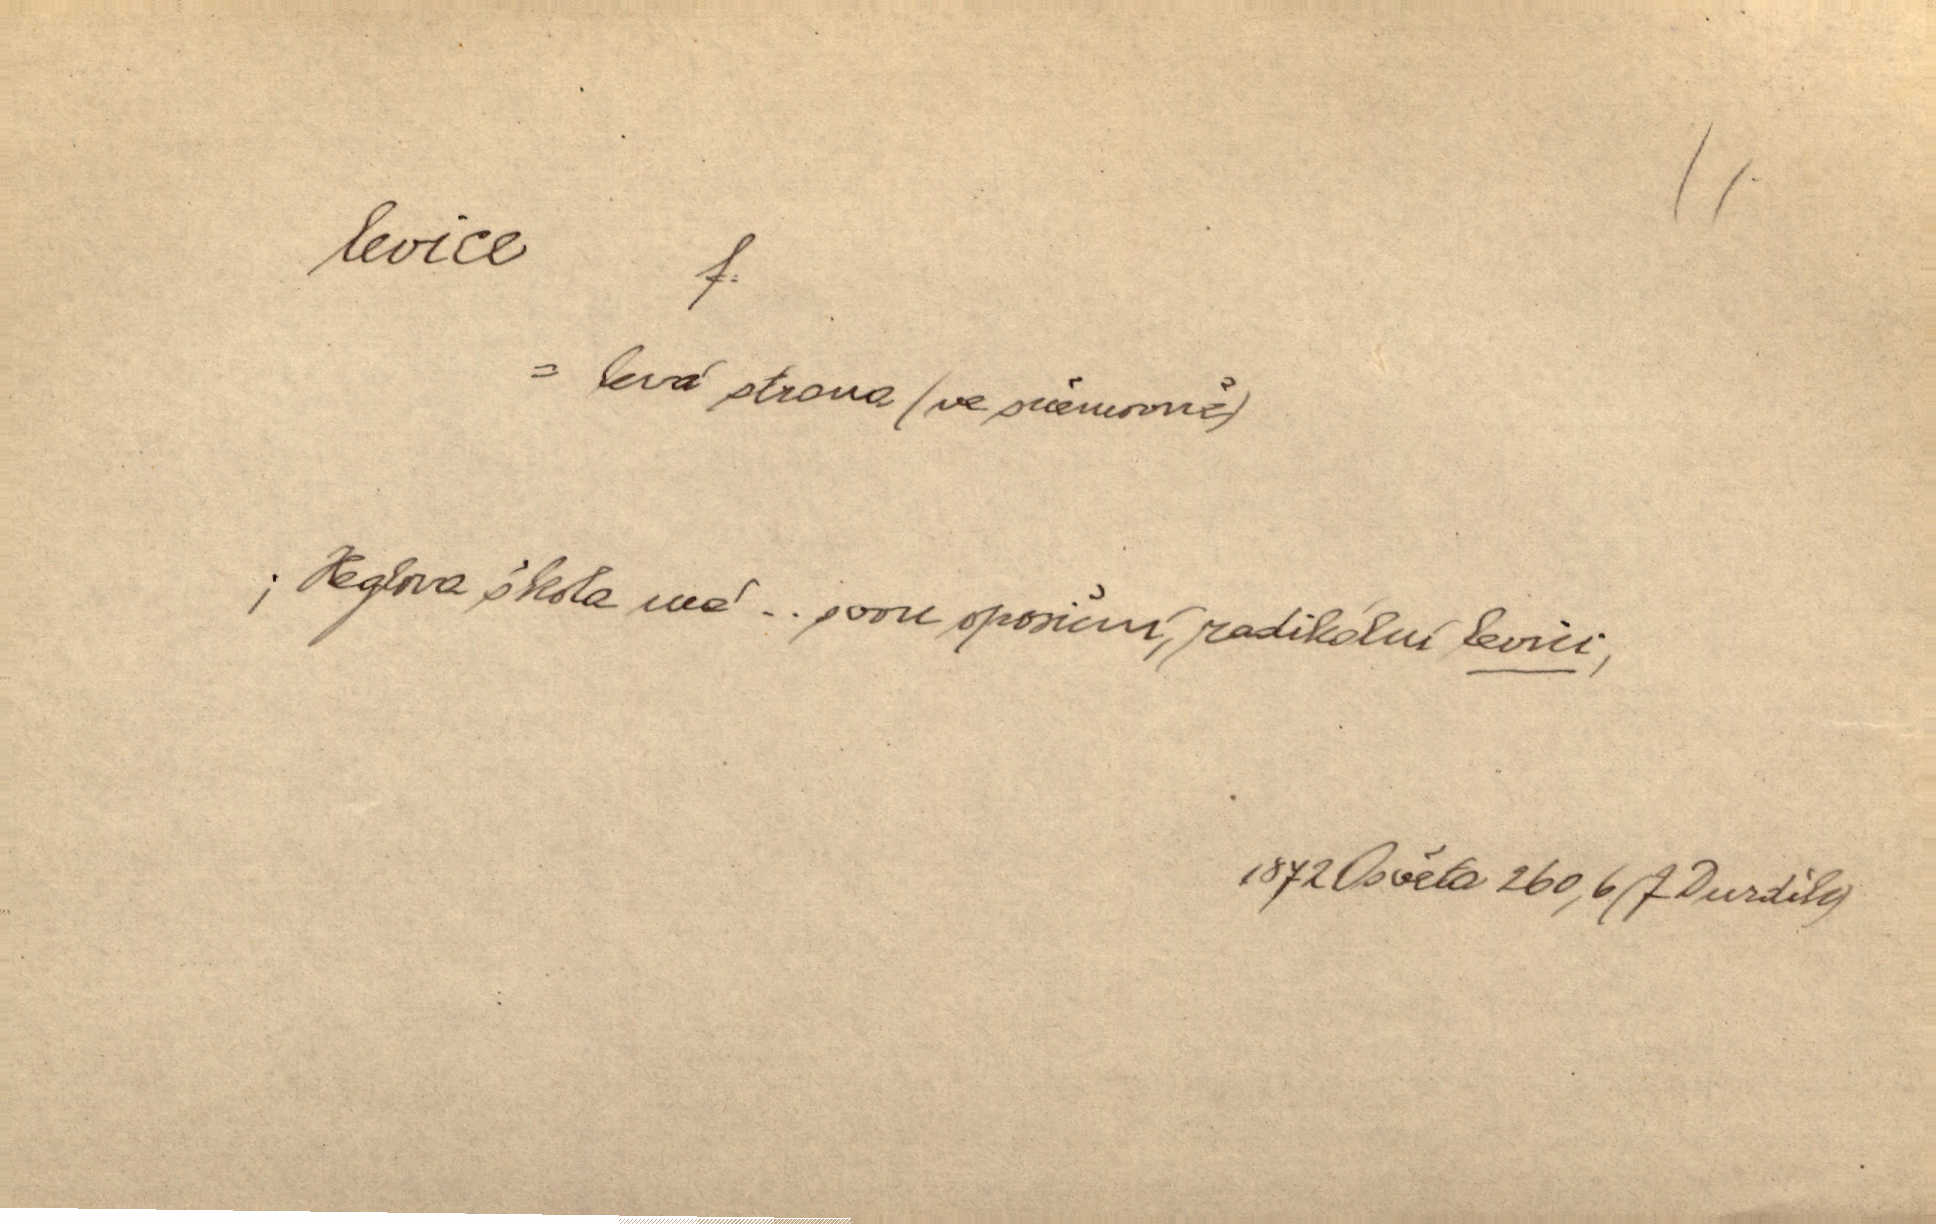 levice f.
= levá strana (ve sněmovně)
; Heglova škola má .. svou oposiční, radikální levici;
1872 Osvěta 260, b (J Durdík)